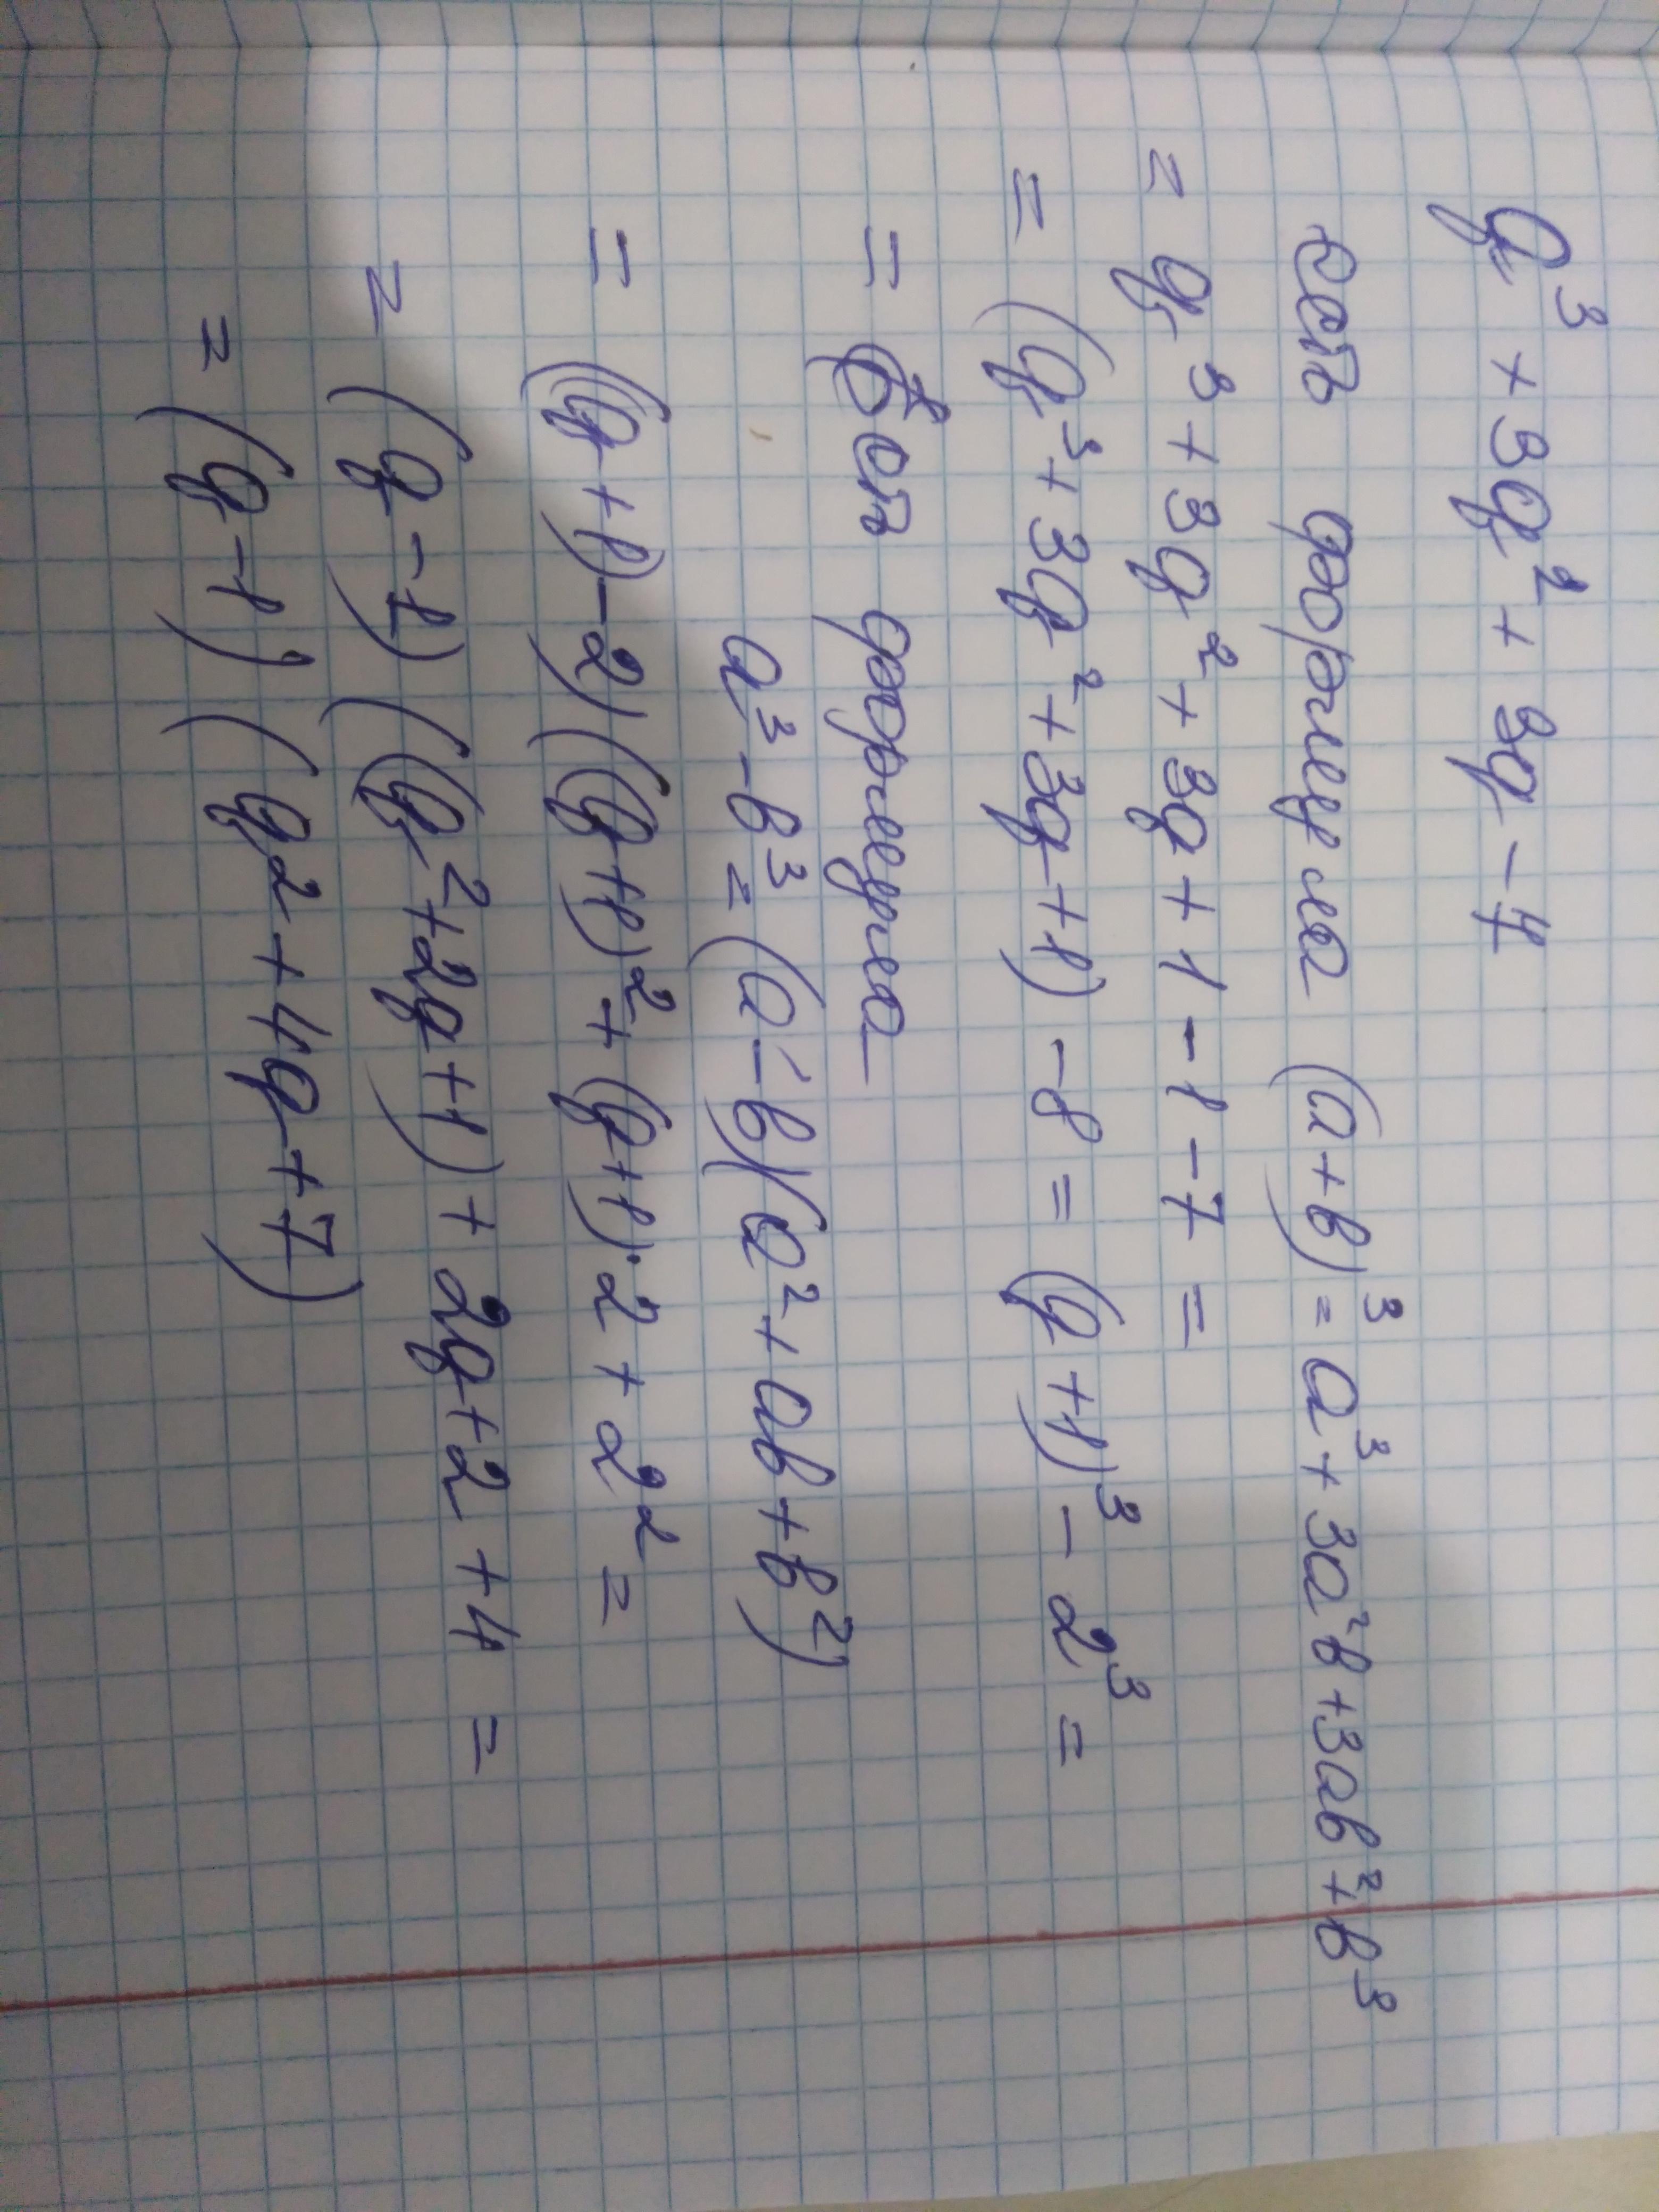 q³ + 3q² + 3q - 7
есть формула (a+b)³ = a³ + 3a²b + 3ab² + b³
= q³ + 3q² + 3q + 1 - 1 - 7 =
= (q³ + 3q² + 3q + 1) - 8 = (q + 1)³ - 2³ =
= есть формула
a³ - b³ = (a - b)(a² + ab + b²)
= ((q + 1) - 2)((q + 1)² + (q + 1)·2 + 2² =
= (q - 1)((q² + 2q + 1) + 2q + 2 + 4 =
= (q - 1)(q² + 4q + 7)